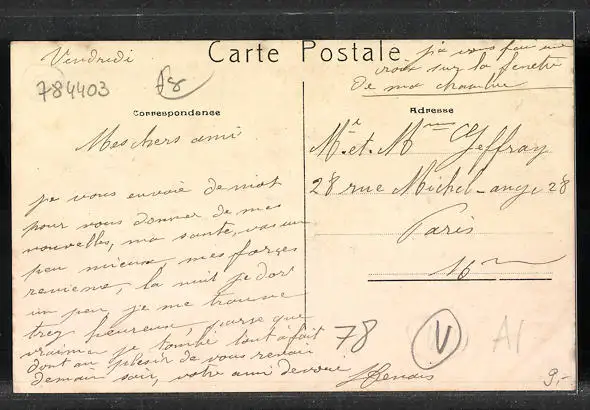 Vendredi
Carte Postale
je vous fais une
croix sur la fenetre
de ma chambre
784403
Correspondance
Adresse
Mes chers amis
je vous envoie de mot
pour vous donner de mes
nouvelles, ma santé, vas un
peu mieux, mes forces
reviens, la nuit je dort
un peu, je me trouve
trez heureux, parse que
vraimen je tombe tout à fait
dont au plesir de vous revoir
demain soir, votre ami devoué
Mr et Mme Geffray
28 rue Michel-ange 28
Paris
16me
78
V
A1
9,-